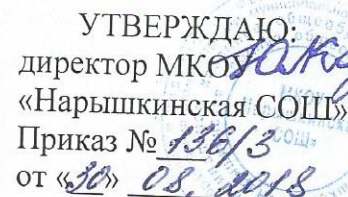 УТВЕРЖДАЮ:
директор МКОУ
«Нарышкинская СОШ»
Приказ № 136/3
от «30» 08. 2018